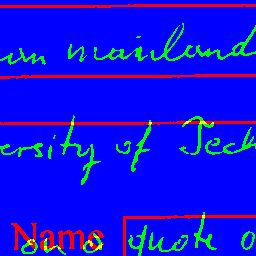 mainland
ersity of Tech
Name on a quote o